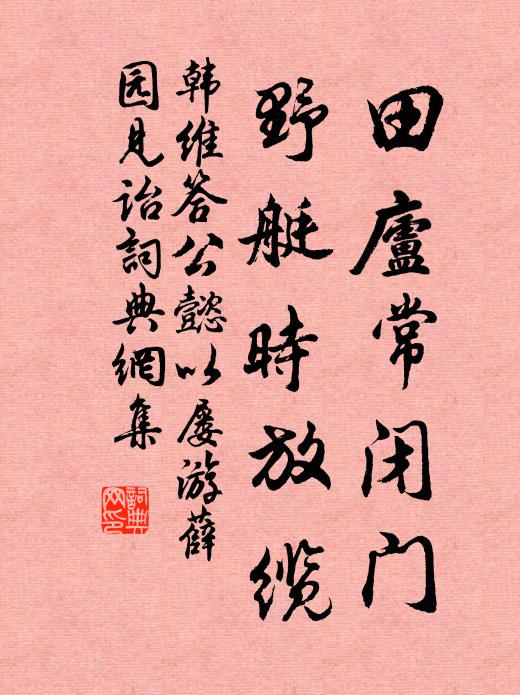 田廬常闭门
野艇時放缆
韩维答公懿以屡游薛
园見诒詞典網集
詞典网印